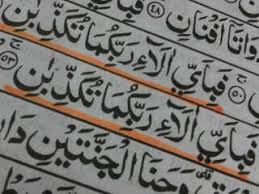 وَاتَآ اَفْنَانٍ ۝٤٨ فَبِاَيِّ
۝٥٠ فَبِاَيِّ اٰلَآءِ رَبِّكُمَا تُكَذِّبٰنِ
فَبِاَيِّ اٰلَآءِ رَبِّكُمَا تُكَذِّبٰنِ ۝٥٣
وَجَنَا الْجَنَّتَيْنِ دَا